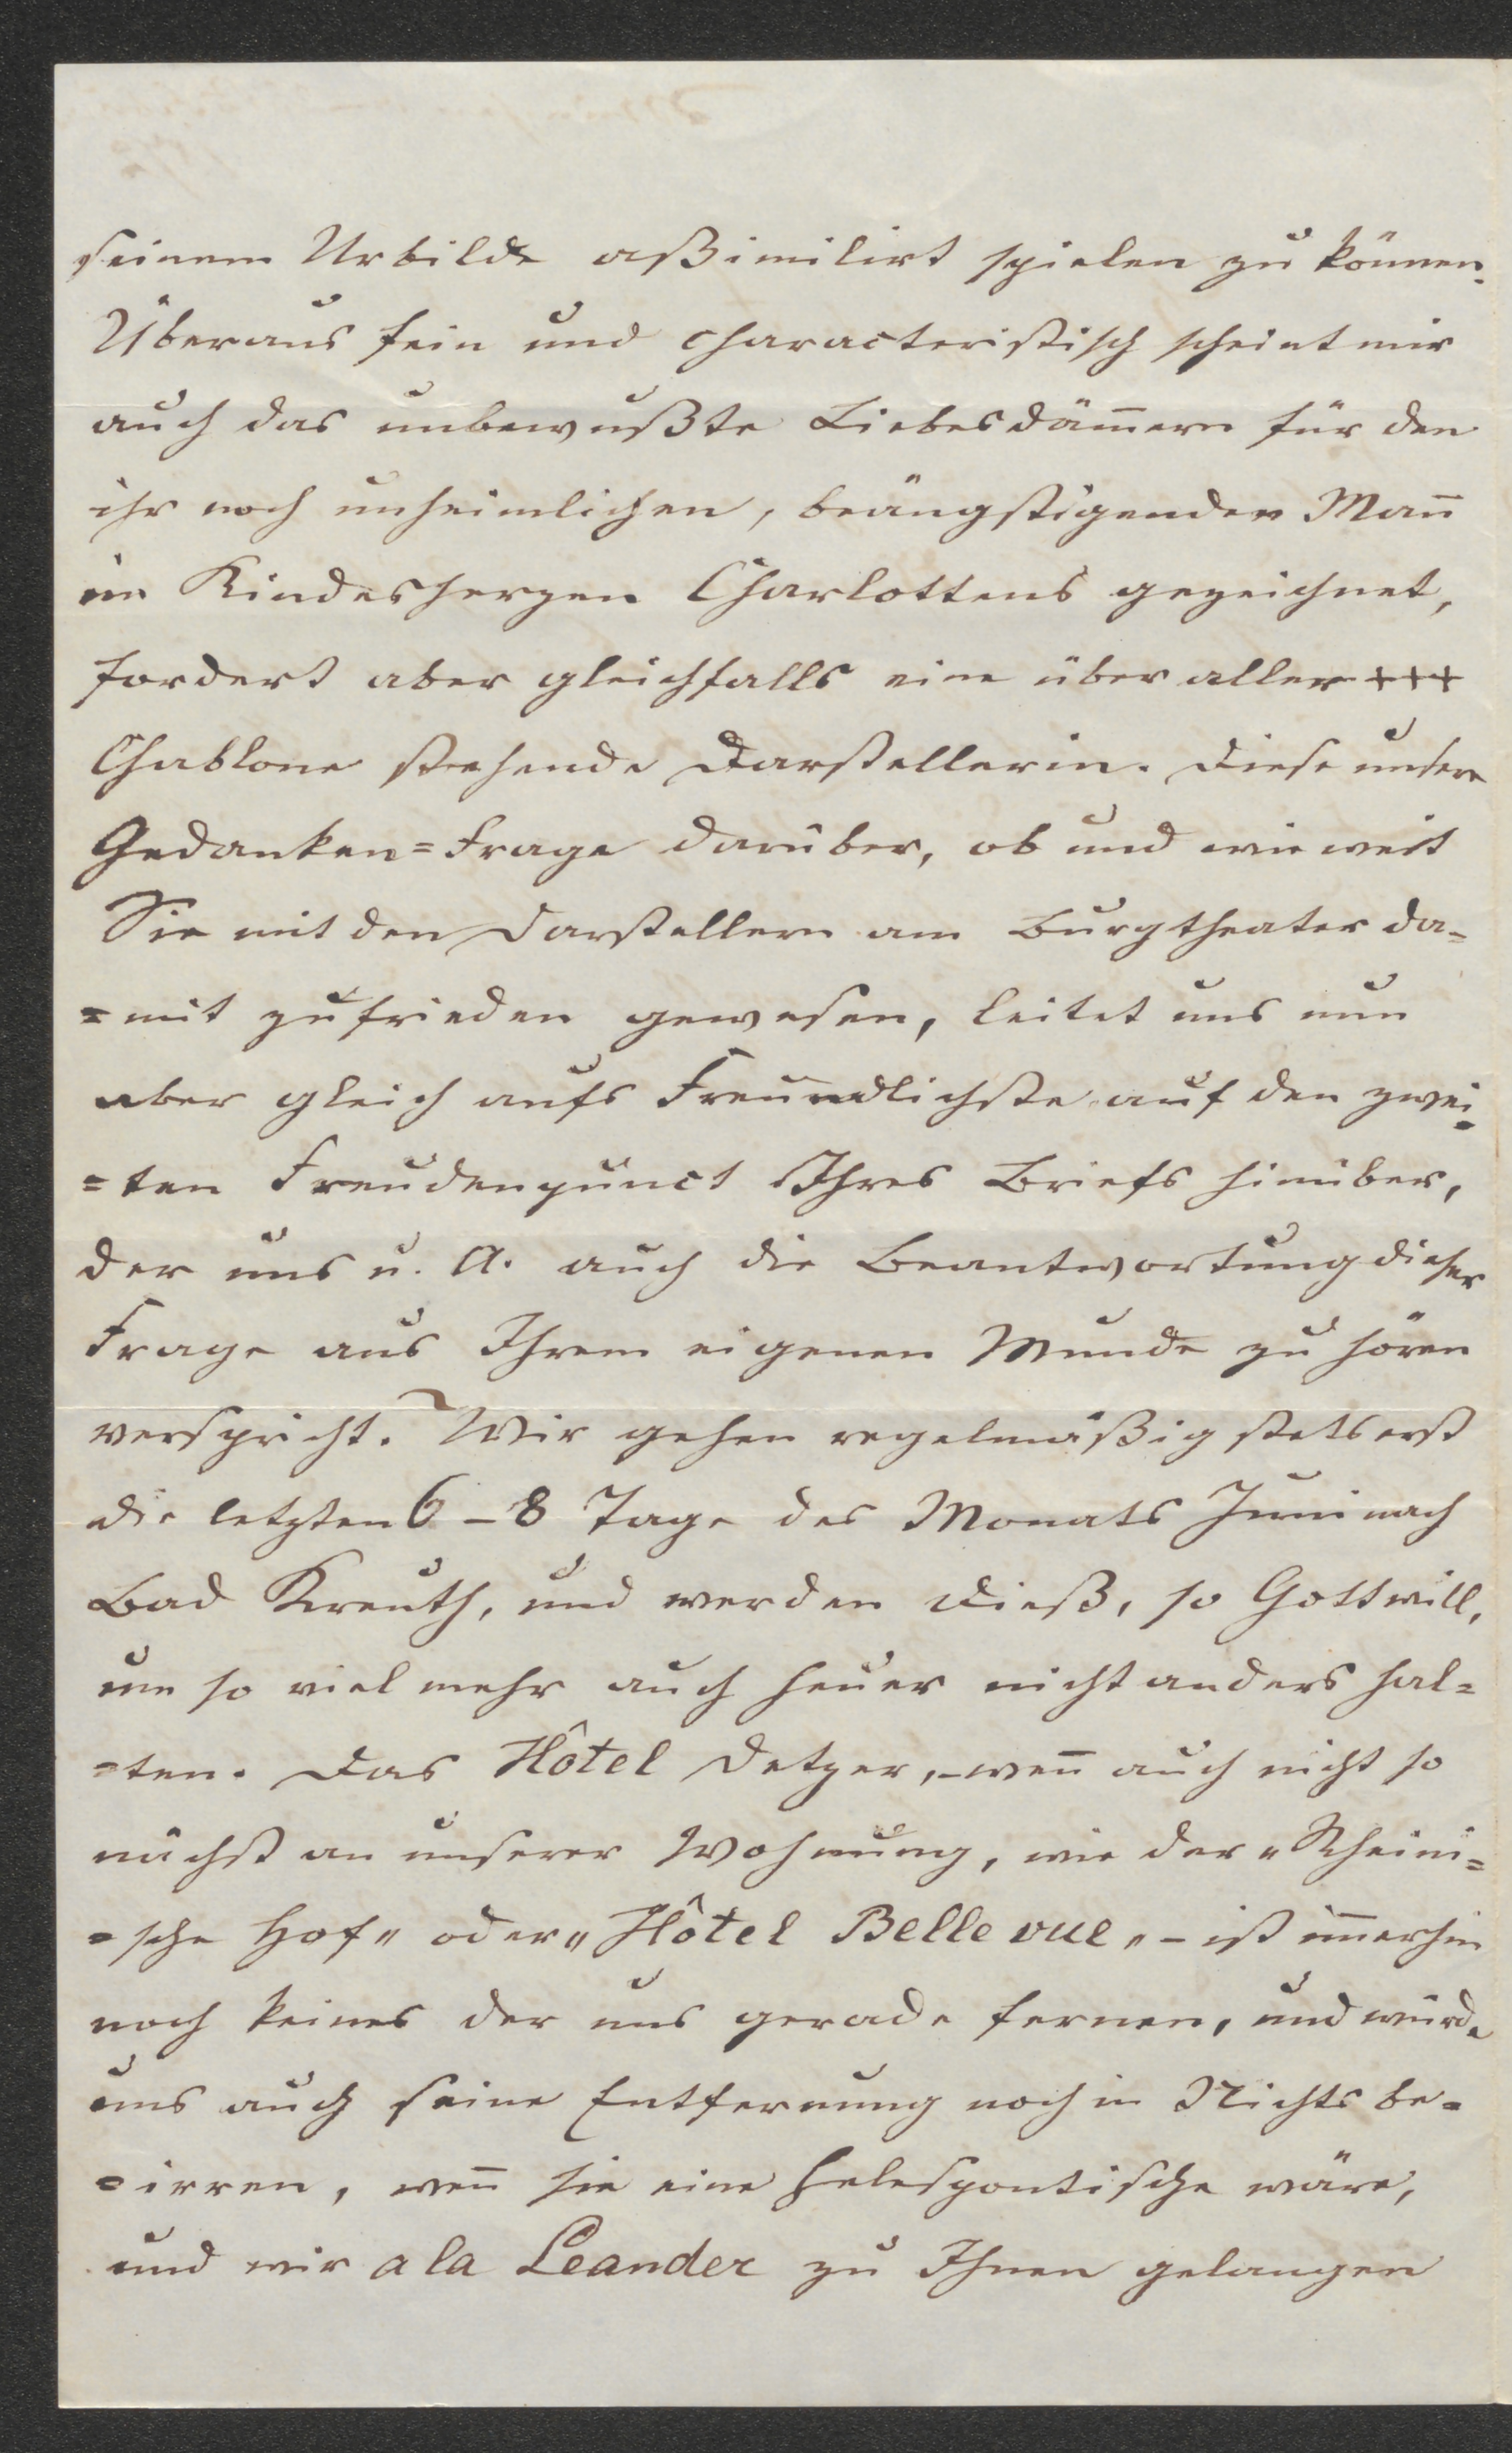 seinem Urbilde aßimilirt spielen zu können.
Überaus fein und characteristisch scheint mir
auch das unbewußte Liebesdäm̄ern für den
ihr noch unheimlichen, beängstigenden Man̄
im Kindesherzen Charlottens gezeichnet,
fordert aber gleichfalls eine über aller +++
Chablone stehende Darstellerin. Diese unsere
Gedanken=Frage darüber, ob und wie weit
Sie mit den Darstellern am Burgtheater da=
=mit zufrieden gewesen, leitet uns nun
aber gleich aufs Freundlichste auf den zwei=
=ten Freudenpunct Ihres Briefs hinüber,
der uns u. A. auch die Beantwortung dieser
Frage aus Ihrem eigenen Munde zu hören
verspricht. Wir gehen regelmäßig stets erst
die letzten 6–8 Tage des Monats Juni nach
Bad Kreuth, und werden dieß, so Gott will,
um so viel mehr auch heuer nicht anders hal=
=ten. Das Hôtel Detzer, – wen̄ auch nicht so
nächst an unserer Wohnung, wie der „Rheini=
=sche Hof" oder „Hôtel Belle vue" – ist im̄erhin
noch keines der uns gerade fernen, und würde
uns auch seine Entfernung noch in Nichts be=
=irren, wen̄ sie eine helespontische wäre,
und wir a la Leander zu Ihnen gelangen